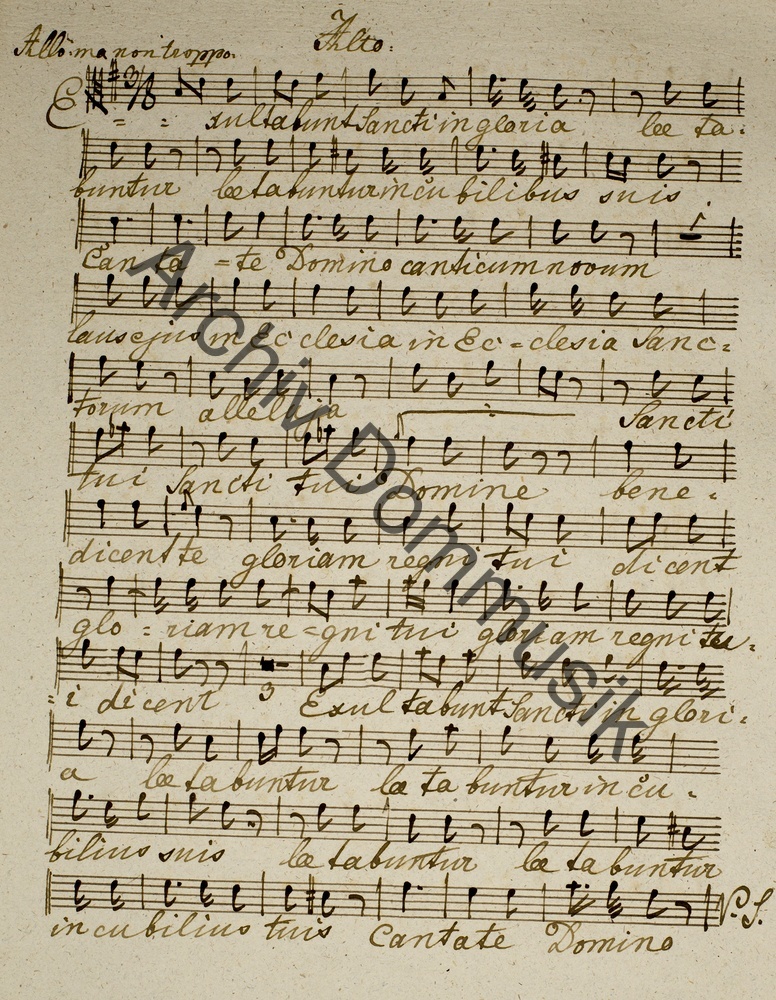 Alto.
Allo: ma non troppo.
E = = xultabunt Sancti in gloria læ ta =
buntur lætabuntur in cu bilibus suis.
Can ta = te Domino canticum novum
laus ejus in Ec clesia in Ec = clesia Sanc =
torum alleluja Sancti
tui Sancti tui Domine bene =
dicent te gloriam regni tui dicent
glo = riam re = gni tui gloriam regni tu =
= i dicent 3 Exul tabunt Sancti in glori =
a læ tabuntur læ ta buntur in cu =
bilius suis læ tabuntur læ tabuntur
in cubilius tuis Cantate Domino
V. S.
Archiv Dommusik